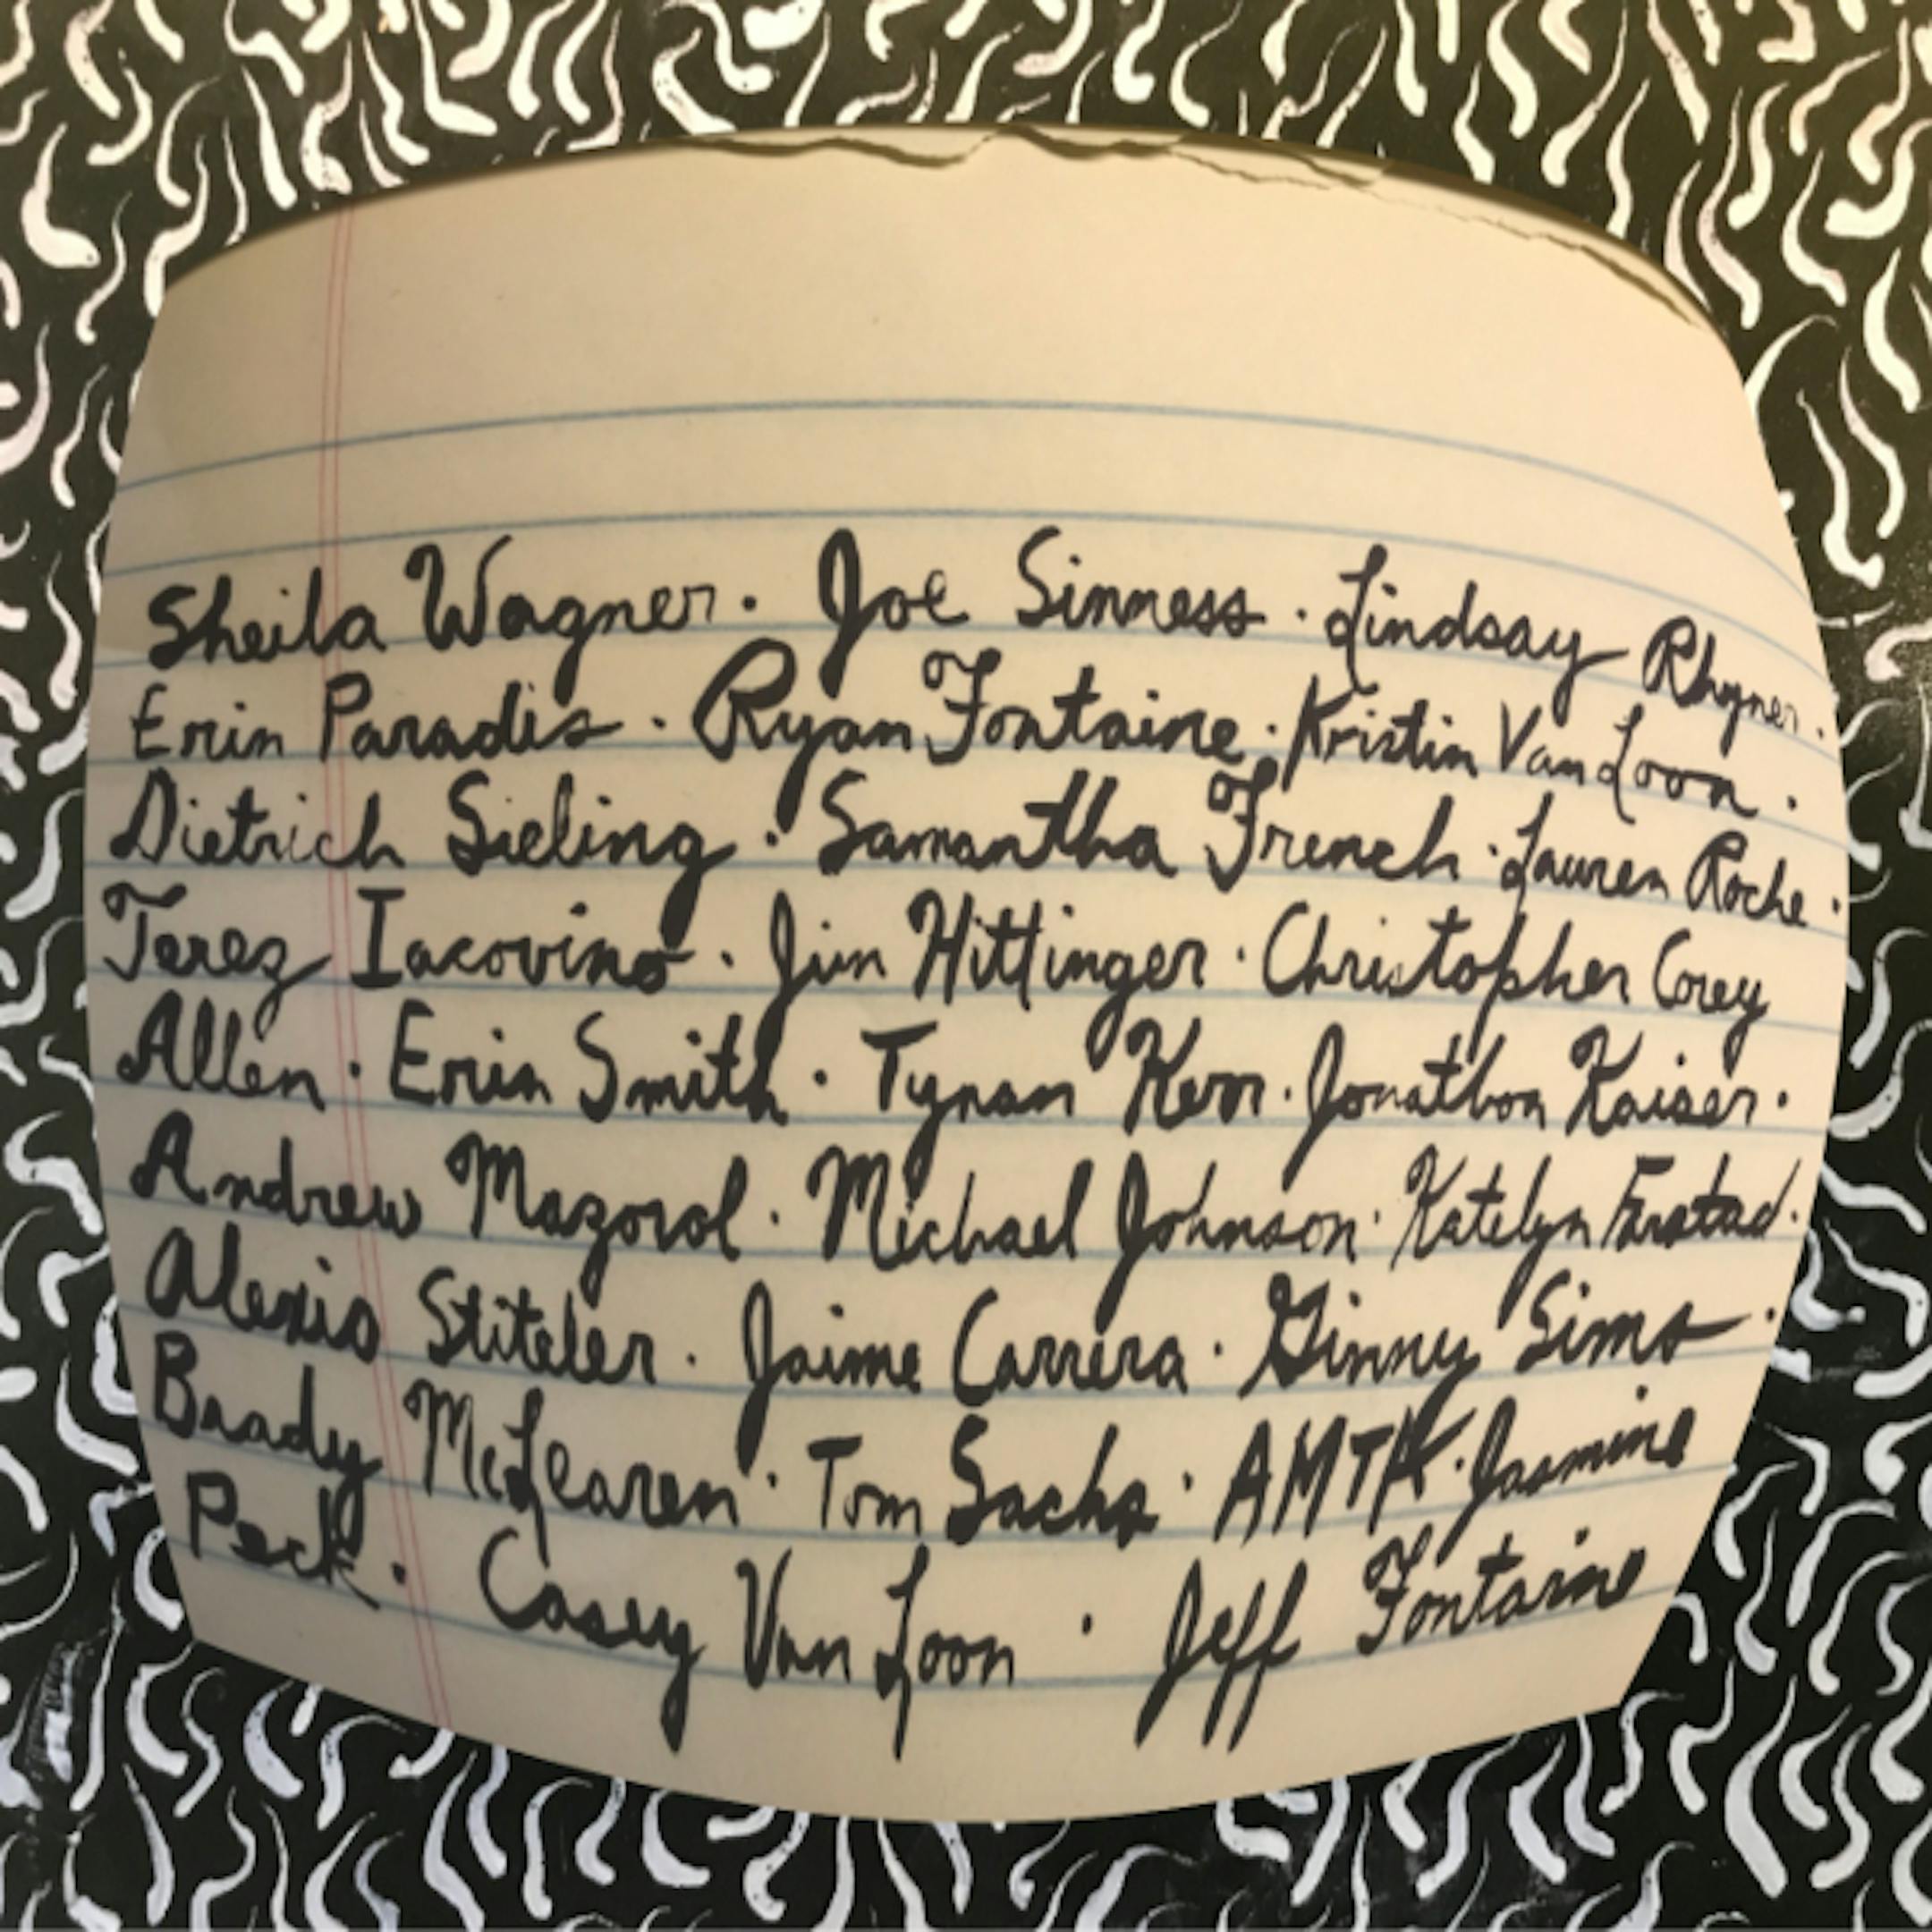 Sheila Wagner · Joe Sinness · Lindsay Rhyner ·
Erin Paradis · Ryan Fontaine · Kristin Van Loon ·
Dietrich Sieling · Samantha French · Lauren Roche ·
Terez Iacovino · Jim Hittinger · Christopher Corey
Allen · Erin Smith · Tynan Kerr · Jonathon Kaiser ·
Andrew Mazorol · Michael Johnson · Katelyn Farstad ·
Alexis Stiteler · Jaime Carrera · Ginny Sims ·
Brady McLearen · Tom Sachs · AMTK · Jasmine
Peck · Casey Van Loon · Jeff Fontaine